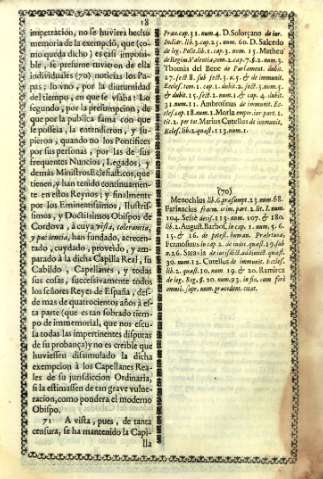 18
impetracion, no se huviera hecho
memoria de la exempciō, que (co-
mo queda dicho) es casi imposi-
ble, se presume tuvieron de ella
individuales (70) noticias los Pa-
pas; lo vno, por la diuturnidad
del tiempo, en que se vsaba: Lo
segundo, por la presumpcion, de
que por la publica fama con que
se posseìa, la entendieron, y su-
pieron, quando no los Pontifices
por sus personas, por las de sus
frequentes Nuncios, Legados, y
demàs Ministros Eclesiasticos, que
tienen, y han tenido continuamen-
te en estos Reynos; y finalmente
por los Eminentissimos, Ilustris-
simos, y Doctissimos Obispos de
Cordova, à cuya vista, tolerancia,
y paciencia, se han fundado, acrecen-
tado, cuydado, proveìdo, y am-
parado à la dicha Capilla Real, su
Cabildo, Capellanes, y todas
sus cosas, successivamente todos
los señores Reyes de España, des-
de mas de quatrocientos años à es-
ta parte (que es tan sobrado tiem-
po de immemorial, que nos escu-
sa todas las impertinentes disputas
de su probança) y no es creible que
huviessen dissimulado la dicha
exempcion à los Capellanes Rea-
les de su jurisdiccion Ordinaria,
si la estimassen de tan grave vulne-
racion, como pondera el moderno
Obispo.
71 A vista, pues, de tanta
censura, se ha mantenido la Capi-
lla
cap. 31. num. 4. D. Solorçano de iur.
Indiar. lib. 3. cap. 25. num. 60. D. Salcedo
de leg. Polit. lib. 1. cap. 3. num. Matheu
de Regim. Valentiæ, cap. 2. §. 2. num. 3.
Thomas del Bene de Parlament. dubit.
17. sect. 8. sub sect. 3. n. 5. & de immunit.
Eccles. tom. 1. cap. 1. dubit.
31. num. 11. Ambrosinus de immunit. Ec-
cles. cap. 18. num. 1. Morla empor. iur. part. 1.
tit. 2. per tot. Marius Cutellus de immunit.
Eccles. lib. 2. quæst. 113. num. 1.
(70)
Menochius lib. 6. præsumpt. 23. num. 68.
Farinacius fragm. crim. part. 2. lit. I. num.
104. Solet decis. 113. num. 107. & 180.
lib. 2. August. Barbos. in cap. 1. num. 5. 6.
15. & 26. de postul. Prælator.
Francosinus in cap. 2. de
n. 26. Suarez
30. num. 12. Cutellus de immunit. Eccles.
lib. 2. quæst. 10. num. 19. & 20. Ramirez
de leg. Reg. §. 20. num. 93. in fin. cum seq.